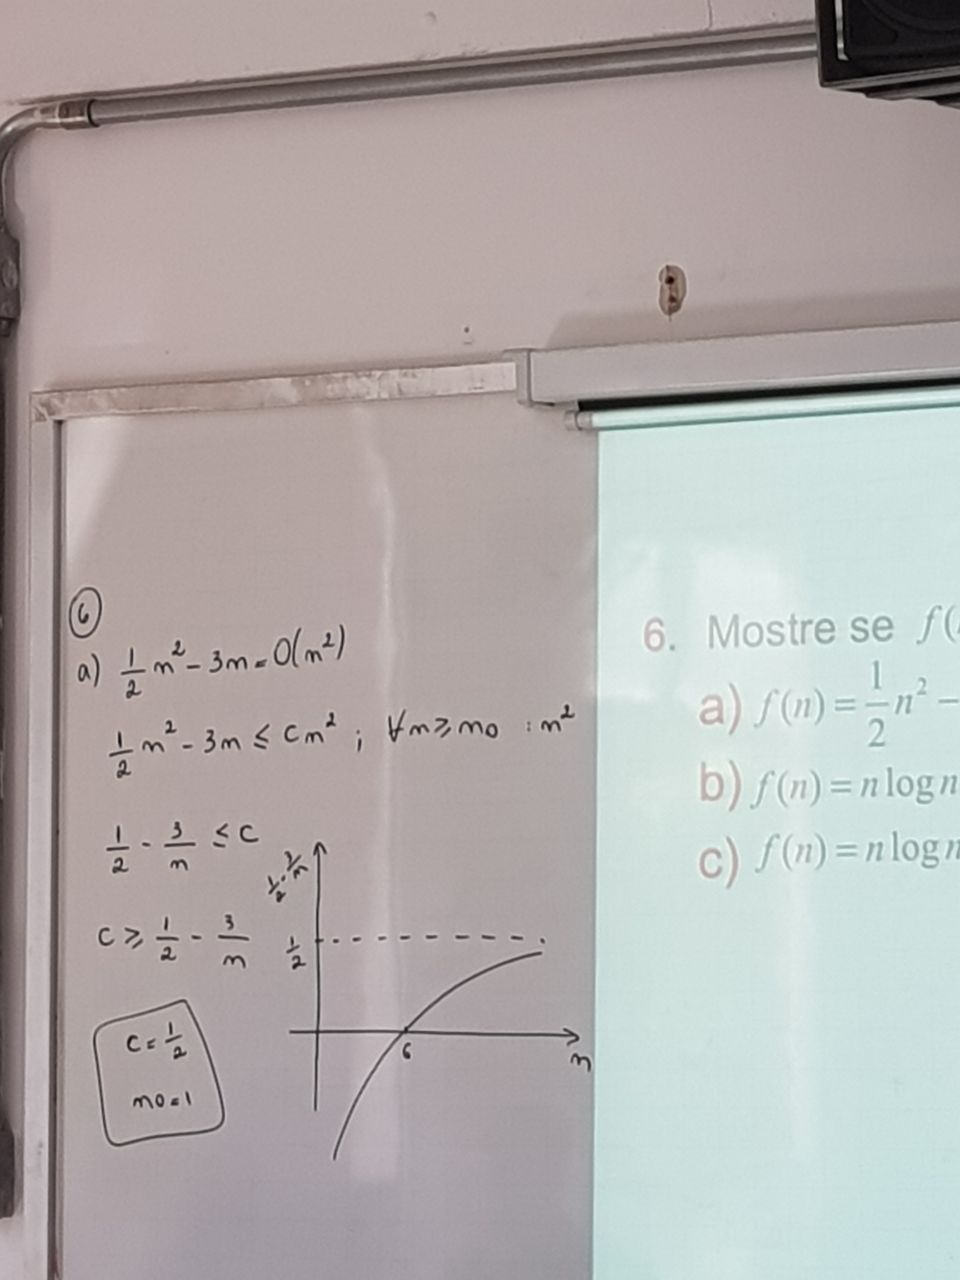 6
a) 1/2 n² - 3n = O(n²)
1/2 n² - 3n ≤ cn² ; ∀n ≥ n0 : n²
1/2 - 3/n ≤ c
c ≥ 1/2 - 3/n
c = 1/2
n0 = 1
1/2 - 3/n
1/2
6
n
6. Mostre se f(
a) f(n) = 1/2 n² –
b) f(n) = n log n
c) f(n) = n log n